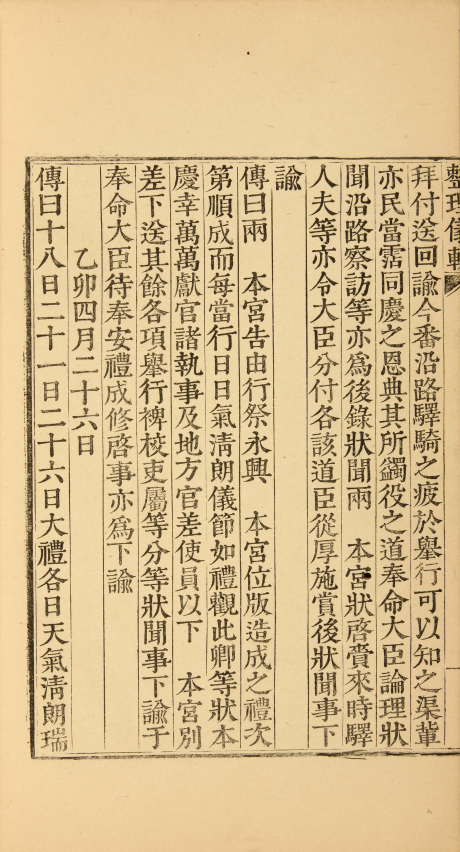 整理儀軌
拜付送回諭今番沿路驛騎之疲於舉行可以知之渠輩
亦民當霑同慶之恩典其所蠲役之道奉命大臣論理狀
聞沿路察訪等亦爲後錄狀聞兩　本宮狀啓賫來時驛
人夫等亦令大臣分付各該道臣從厚施賞後狀聞事下
諭
傳曰兩　本宮告由行祭永興　本宮位版造成之禮次
第順成而每當行日日氣淸朗儀節如禮觀此卿等狀本
慶幸萬萬獻官諸執事及地方官差使員以下　本宮別
差下送其餘各項舉行裨校吏屬等分等狀聞事下諭于
奉命大臣待奉安禮成修啓事亦爲下諭
乙卯四月二十六日
傳曰十八日二十一日二十六日大禮各日天氣淸朗瑞